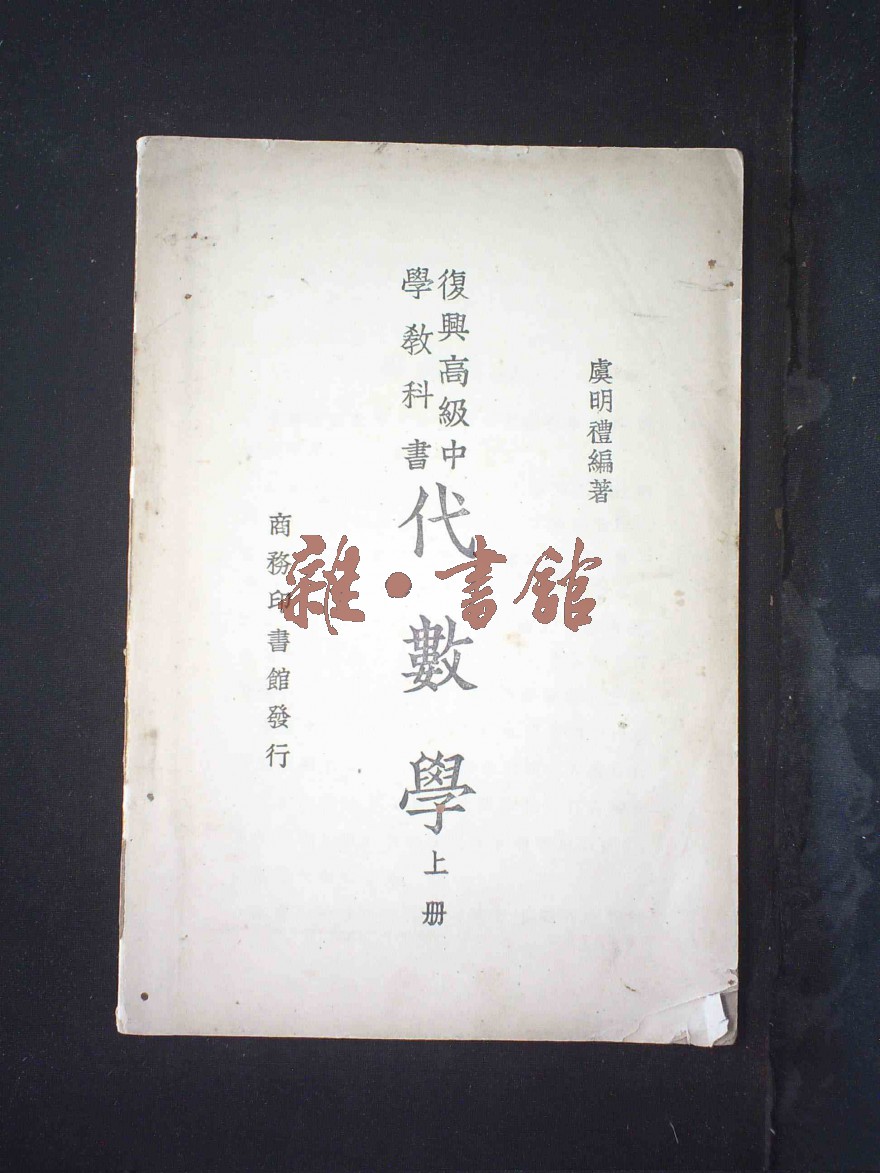 虞明禮編著
復興高級中
學教科書
代數學
上册
商務印書館發行
雜•書館